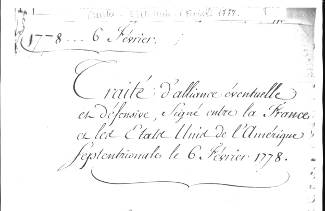 1778 ... 6 Février.
Traité d'alliance éventuelle
et défensive, Signé entre la France
et les Etats Unit de l'Amérique
Septentrionale le 6 Février 1778.